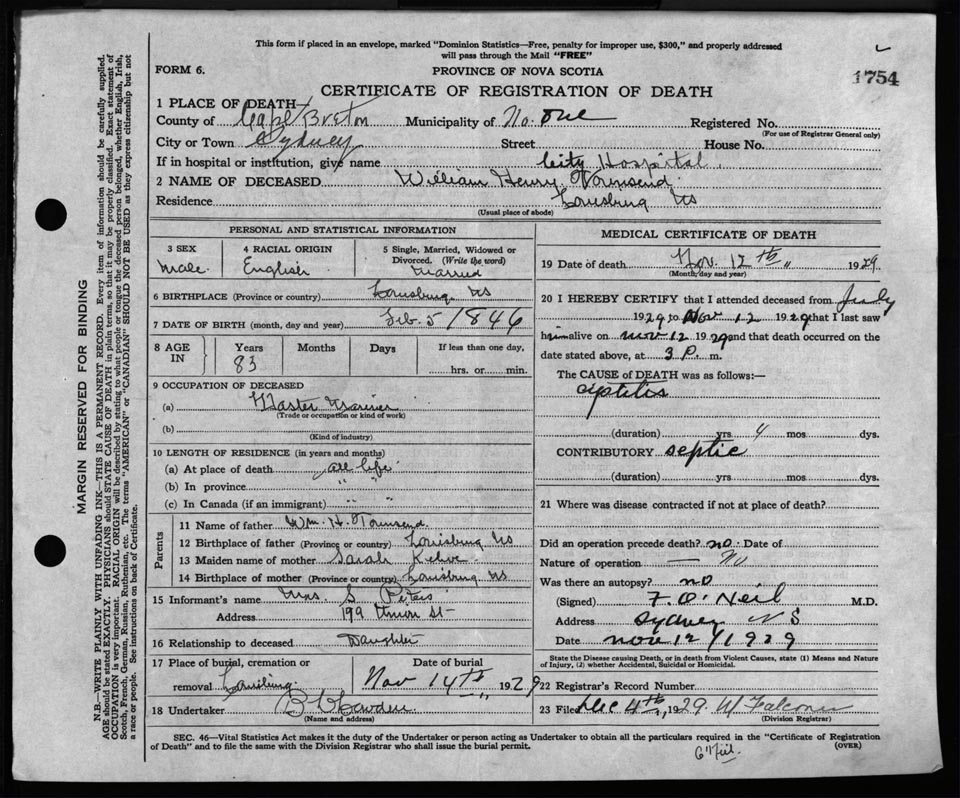 This form if placed in an envelope, marked "Dominion Statistics—Free, penalty for improper use, $300," and properly addressed
will pass through the Mail "FREE"
FORM 6.
PROVINCE OF NOVA SCOTIA
1754
CERTIFICATE OF REGISTRATION OF DEATH
1 PLACE OF DEATH
County of Cape Breton Municipality of No. one Registered No.
(For use of Registrar General only)
City or Town Sydney Street House No.
If in hospital or institution, give name City Hospital
2 NAME OF DECEASED William Henry Townsend
Residence Louisburg NS
(Usual place of abode)
PERSONAL AND STATISTICAL INFORMATION
3 SEX 4 RACIAL ORIGIN 5 Single, Married, Widowed or
Divorced. (Write the word)
Male English Married
6 BIRTHPLACE (Province or country) Louisburg NS
7 DATE OF BIRTH (month, day and year) Feb. 5 1846
8 AGE IN Years Months Days If less than one day,
83 hrs. or min.
9 OCCUPATION OF DECEASED
(a) Master Mariner
(Trade or occupation or kind of work)
(b)
(Kind of industry)
10 LENGTH OF RESIDENCE (in years and months)
(a) At place of death all life
(b) In province " "
(c) In Canada (if an immigrant) " "
Parents
11 Name of father Wm. H. Townsend
12 Birthplace of father (Province or country) Louisburg NS
13 Maiden name of mother Sarah
14 Birthplace of mother (Province or country) Louisburg NS
15 Informant's name Mrs. S Peters
Address 199 Union St
16 Relationship to deceased Daughter
17 Place of burial, cremation or Date of burial
removal Louisburg Nov 14th 1929
18 Undertaker
(Name and address)
MEDICAL CERTIFICATE OF DEATH
19 Date of death Nov. 12th 1929
(Month, day and year)
20 I HEREBY CERTIFY that I attended deceased from July
1929 to Nov 12 1929 that I last saw
him alive on Nov 12 1929 and that death occurred on the
date stated above, at 3 P. m.
The CAUSE of DEATH was as follows:—
(duration) yrs 4 mos dys.
CONTRIBUTORY septic
(duration) yrs mos dys.
21 Where was disease contracted if not at place of death?
Did an operation precede death? no Date of
Nature of operation — No
Was there an autopsy? no
(Signed) F. O'Neil M.D.
Address Sydney N S
Date Nov 12/1929
State the Disease causing Death, or in death from Violent Causes, state (1) Means and Nature
of Injury, (2) whether Accidental, Suicidal or Homicidal.
22 Registrar's Record Number
23 Filed Dec 4th 1929 W Falconer
(Division Registrar)
SEC. 46—Vital Statistics Act makes it the duty of the Undertaker or person acting as Undertaker to obtain all the particulars required in the "Certificate of Registration
of Death" and to file the same with the Division Registrar who shall issue the burial permit.
(OVER)
MARGIN RESERVED FOR BINDING
N.B.—WRITE PLAINLY WITH UNFADING INK—THIS IS A PERMANENT RECORD. Every item of information should be carefully supplied.
AGE should be stated EXACTLY. PHYSICIANS should STATE CAUSE OF DEATH in plain terms, so that it may be properly classified. Exact statement of
OCCUPATION is very important. RACIAL ORIGIN will be described by stating to what people or tongue the deceased person belonged, whether English, Irish,
Scotch, French, German, Russian, Ruthenian, etc. The terms "AMERICAN" or "CANADIAN" SHOULD NOT BE USED as they express citizenship but not
a race or people. See instructions on back of Certificate.